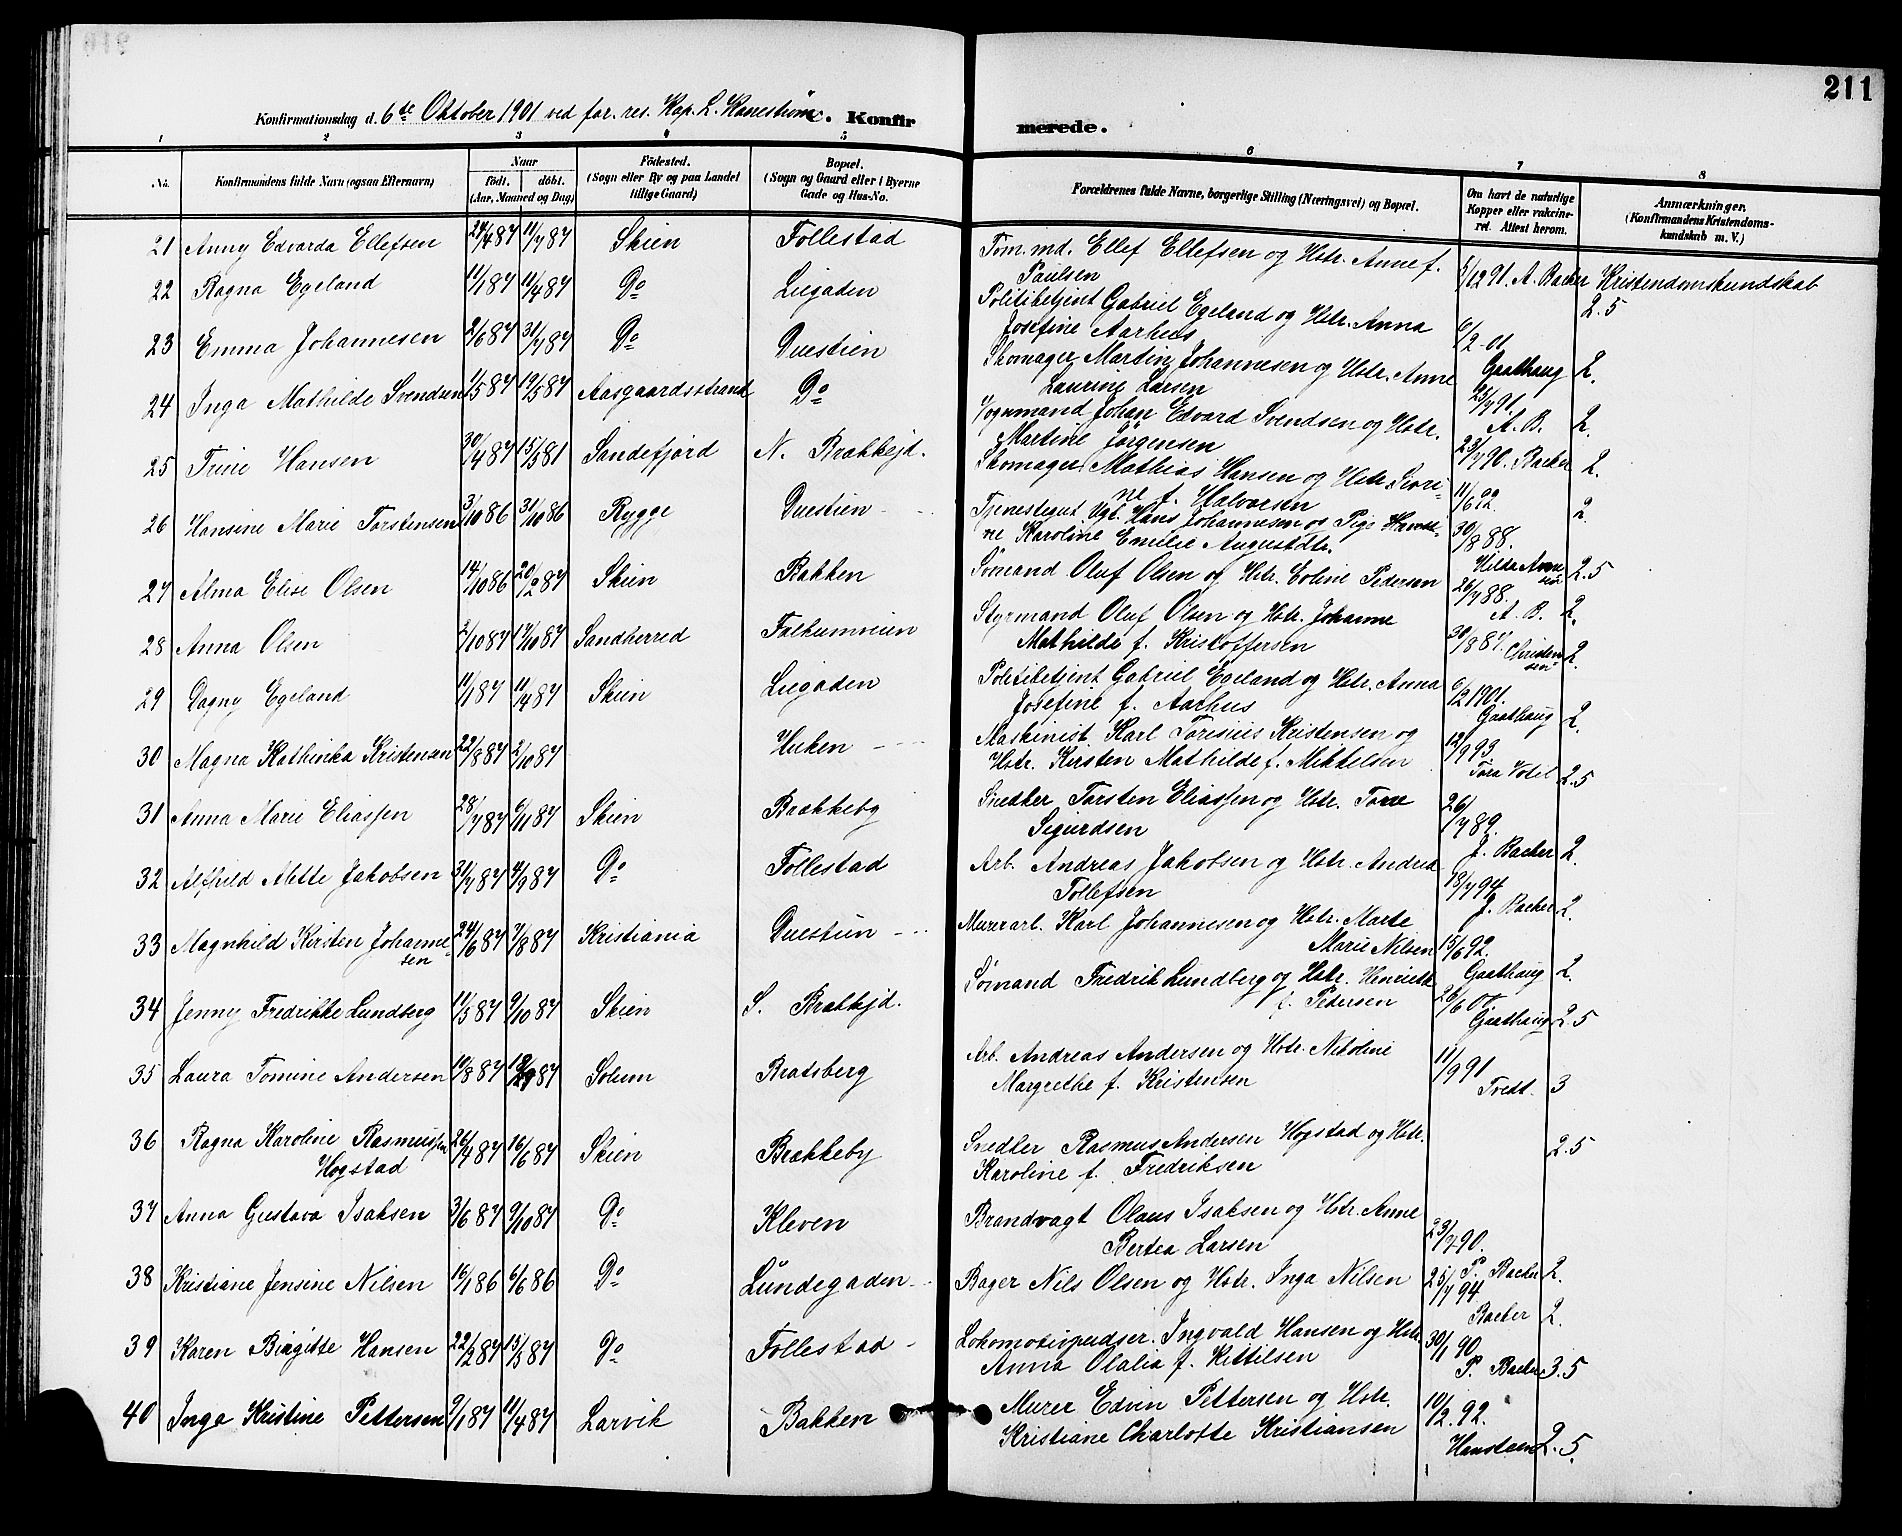 211
Konfirmationsdag d. 6te Oktober 1901 ved for. res. Kap. L. Konfir
merede.
1 2 3 4 5 6 7 8
No. Konfirmandens fulde Navn (ogsaa Efternavn) Naar født. døbt. (Aar, Maaned og Dag) Fødested. (Sogn eller By og paa Landet tillige Gaard) Bopæl. (Sogn og Gaard eller i Byerne Gade og Hus-No.
Forældrenes fulde Navne, borgerlige Stilling (Næringsvei) og Bopæl. Om havt de naturlige Kopper eller vakcineret. Attest herom. Anmærkninger. (Konfirmandens Kristendomskundskab m. V.)
21 Anny Edvarda Ellefsen 24/4 87 11/7 87 Skien Follestad
Tøm. md. Ellef Ellefsen og Hstr. Anne f.
Paulsen 12 91. A. Backer Kristendomskundskab
2.5
22 Ragna Egeland 11/1 87 11/4 87 Do Liegaden
Politibetjent Gabriel Egeland og Hstr. Anna
Josefine Aarhus 6/2 01 Gaathaug 2.
23 Emma Johannesen 2/6 87 31/7 87 Do Duestien
Skomager Martin Johannesen og Hstr. Anne
Laurine Larsen 23/7 91 A. B. 2.
24 Inga Mathilde Svendsen 1/5 87 19/5 87 Aasgaardsstrand Do
Vognmand Johan Edvard Svendsen og Hstr.
Martine Jørgensen 23/7 90. Backer 2.
25 Trine Hansen 30/4 87 15/5 81 Sandefjord N. Brækkejd.
Skomager Mathias Hansen og Hstr. Severi-
ne f. Halvorsen 11/6 92. 2.
26 Hansine Marie Torstensen 3/10 86 31/10 86 Rygge Duestien
Tjenestegut Ugt. Hans Johannesen og Pige Hansi-
ne Karoline Emelie Augustdtr. 30/8 88.
27 Alma Elise Olsen 14/10 86 20/2 87 Skien Bakken
Sømand Oluf Olsen og Hstr. Eoline Pedersen 26/7 88. A. B. 2.5
28 Anna Olsen 2/10 87 17/10 87 Sandherred Falkumveien
Styrmand Oluf Olsen og Hstr. Johanne
Mathilde f. Kristoffersen 30/8 87. Christensen 2.
29 Dagny Egeland 11/1 87 11/4 87 Skien Liegaden
Politibetjent Gabriel Egeland og Hstr. Anna
Josefine f. Aarhus 6/2 1901. Gaathaug 2.
30 Magna Kathinka Kristensen 22/8 87 2/10 87 Huken
Maskinist Karl Kristensen og
Hstr. Kirsten Mathilde f. Mikkelsen 12/9 93 Tora 2.5
31 Anna Marie Eliassen 28/7 87 6/11 87 Skien Brækkeby
Snedker Torsten Eliassen og Hstr. Tone
Sigurdsen 26/7 89. J. Backer 2.
32 Alfhild Mette Jakobsen 31/7 87 4/9 87 Do Follestad
Arb. Andreas Jakobsen og Hstr. Andrea
Tollefsen 18/7 94 J. Backer 2.
33 Magnhild Kirsten Johanne-
sen 24/6 87 7/8 87 Kristiania Duestien
Murerarb. Karl Johannesen og Hstr. Marte
Marie Nilsen 15/6 92. Gaathaug 2.
34 Jenny Fredrikke Lundberg 11/5 87 9/10 87 Skien S. Brækkejd.
Sømand Fredrik Lundberg og Hstr. Henriette
f. Pedersen 26/6 01 Gaathaug 2.5
35 Laura Tomine Andersen 10/8 87 87 Solum Bratsberg
Arb. Andreas Andersen og Hstr. Nikoline
Margrethe f. Kristensen 11/9 91 Tvedt. 3
36 Ragna Karoline Rasmussen
Hogstad 26/4 87 16/6 87 Skien Brækkeby
Snedker Rasmus Andersen Hogstad og Hstr.
Karoline f. Fredriksen 2.5
37 Anna Gustava Isaksen 3/6 87 9/10 87 Do Kleven
Brandvagt Olaus Isaksen og Hstr. Anne
Bertea Larsen 23/7 90. P. Backer 2.
38 Kristiane Jensine Nilsen 16/1 86 6/6 86 Do Lundegaden
Bager Nils Olsen og Hstr. Inga Nilsen 25/7 94 Backer 2.
39 Karen Birgitte Hansen 22/2 87 15/5 87 Do Follestad
Lokomotivpudser. Ingvald Hansen og Hstr.
Anna Olalia f. Kittilsen 30/1 90 P. Backer 3.5
40 Inga Kristine Pettersen 9/1 87 11/4 87 Larvik Bakken
Murer Edvin Pettersen og Hstr.
Kristiane Charlotte Kristiansen 10/2. 92. Hansteen 2.5.